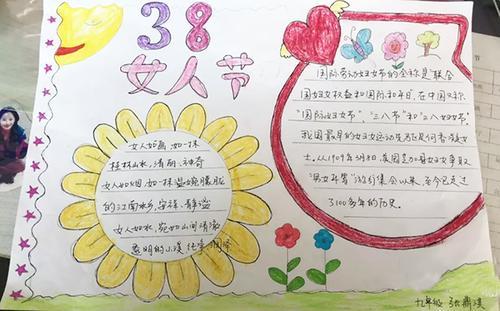 38
女人节
女人如画,如一抹
桂林山水,清丽,神奇
女人如烟,如一抹盈婉朦胧
的江南水乡,安祥,静谧
女人如水,宛如山间清澈
透明的小溪
国际劳动妇女节的全称是"联合
国妇女权益和国际和平日,在中国又称
"国际妇女节""三八节"和"三八妇女节
我国最早的妇女运动先驱是何香凝女
士,从1909年3月8日,美国芝加哥妇女争取
"男女平等"游行集会以来,至今已走过
了100多年的历史。